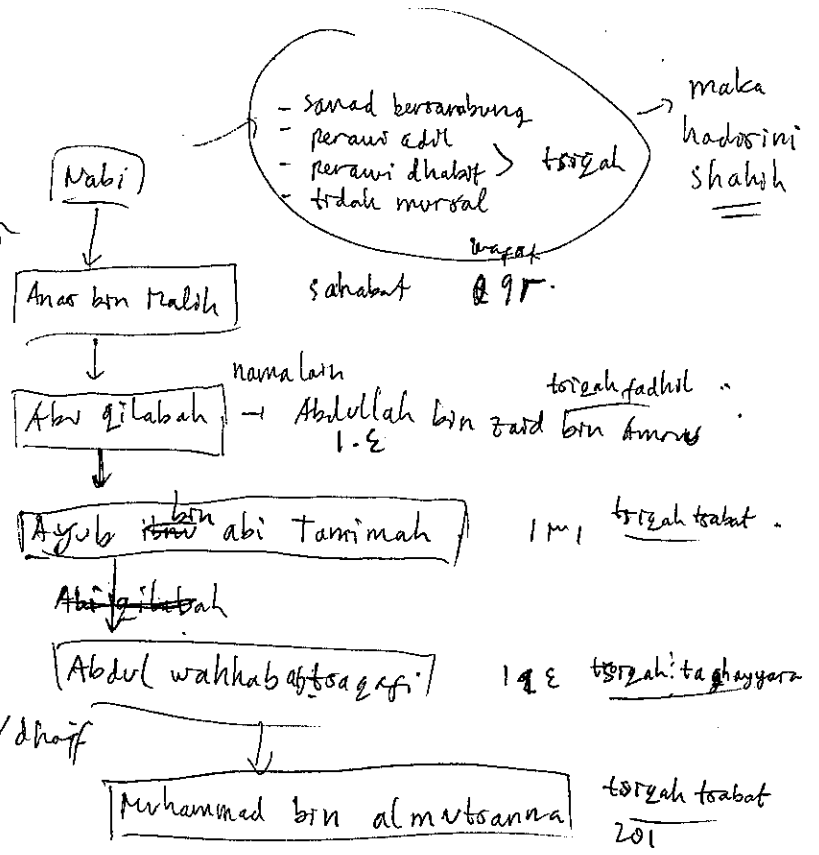 - sanad bersambung
- perawi adil
- perawi dhabit > tsiqah
- tidak mursal
→ maka
hadis ini
shahih
Nabi
Anas bin Malik sahabat wafat ٩٣.
nama lain
Abu qilabah → Abdullah bin zaid bin Amr tsiqah fadhil
١٠٤
Ayub bin abi Tamimah ١٣١ tsiqah tsabat.
Abi qilabah
Abdul wahhab attsaqafi ١٩٤ tsiqah: taghayyara
/dhaif
Muhammad bin almutsanna tsiqah tsabat
201